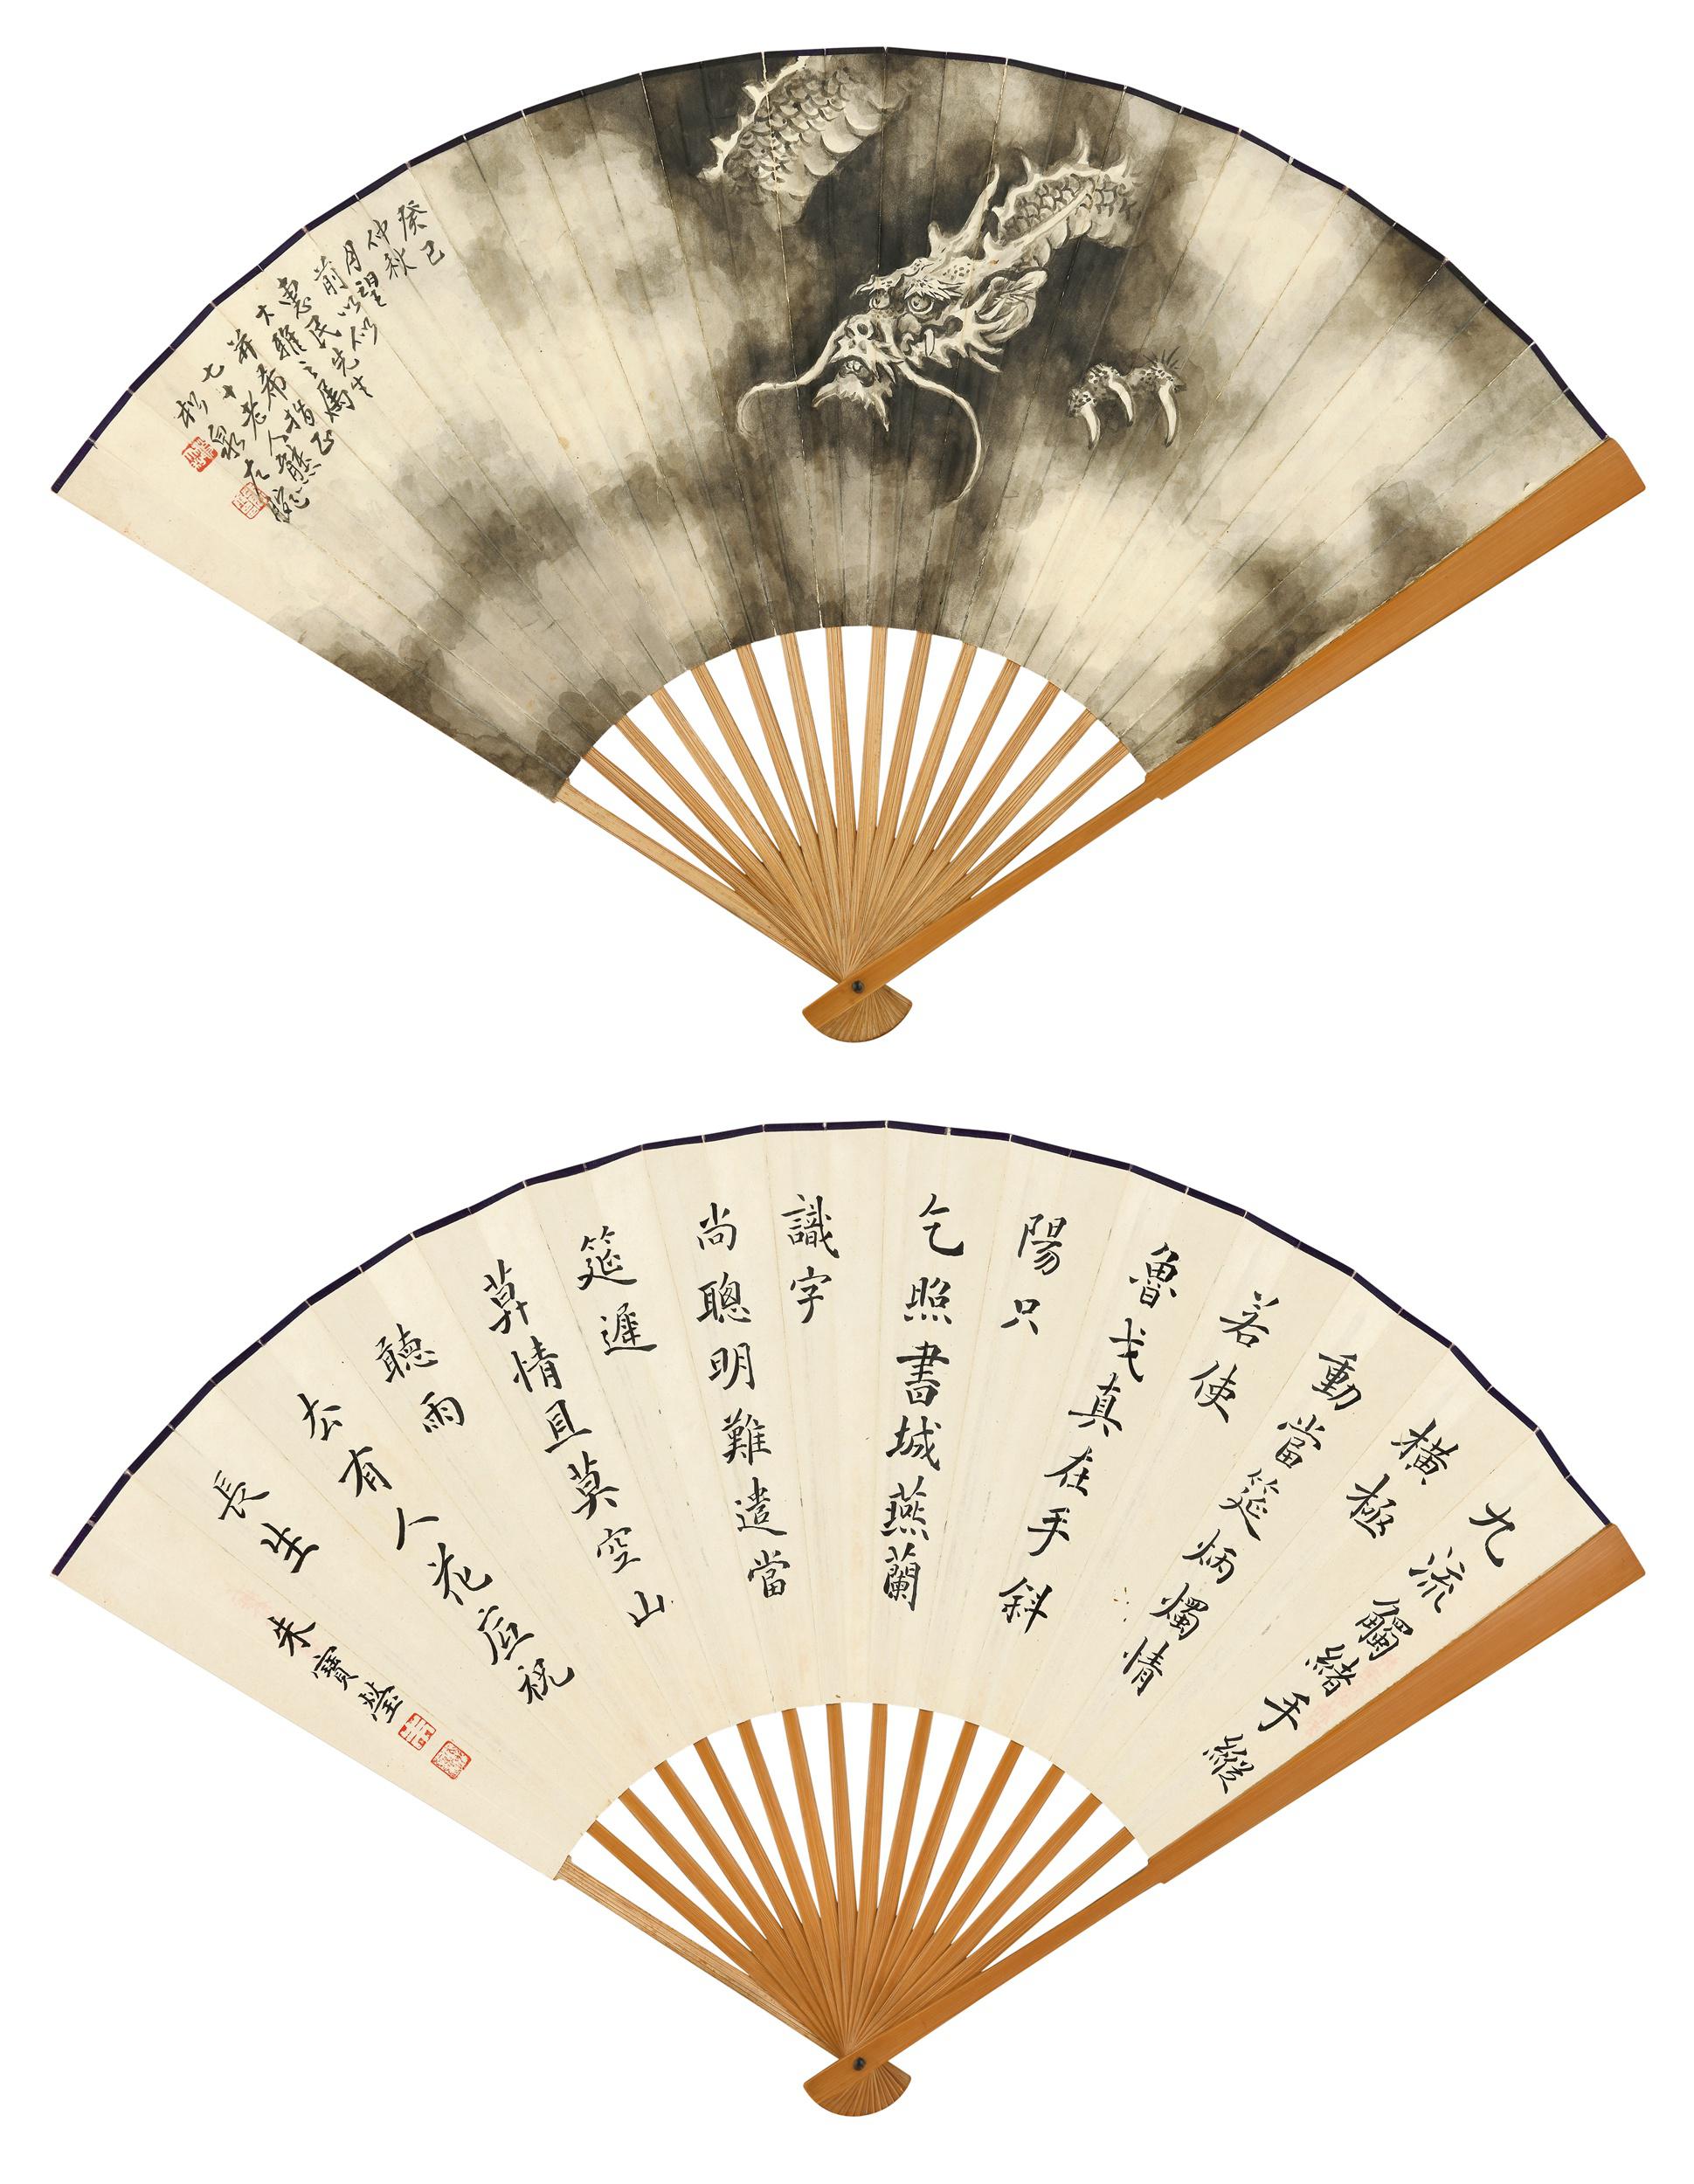 癸巳
仲秋
月望
前以似
惠民先生
大雅之屬
并希指正
七十老人熊
松泉左腕
九流觸緒手縱
橫極
動當筵炳燭情
若使
魯戈真在手斜
陽只
乞照書城燕蘭
識字
尚聰明難遣當
筵遲
莫情且莫空山
聽雨
去有人花底祝
長生 朱寶瑩